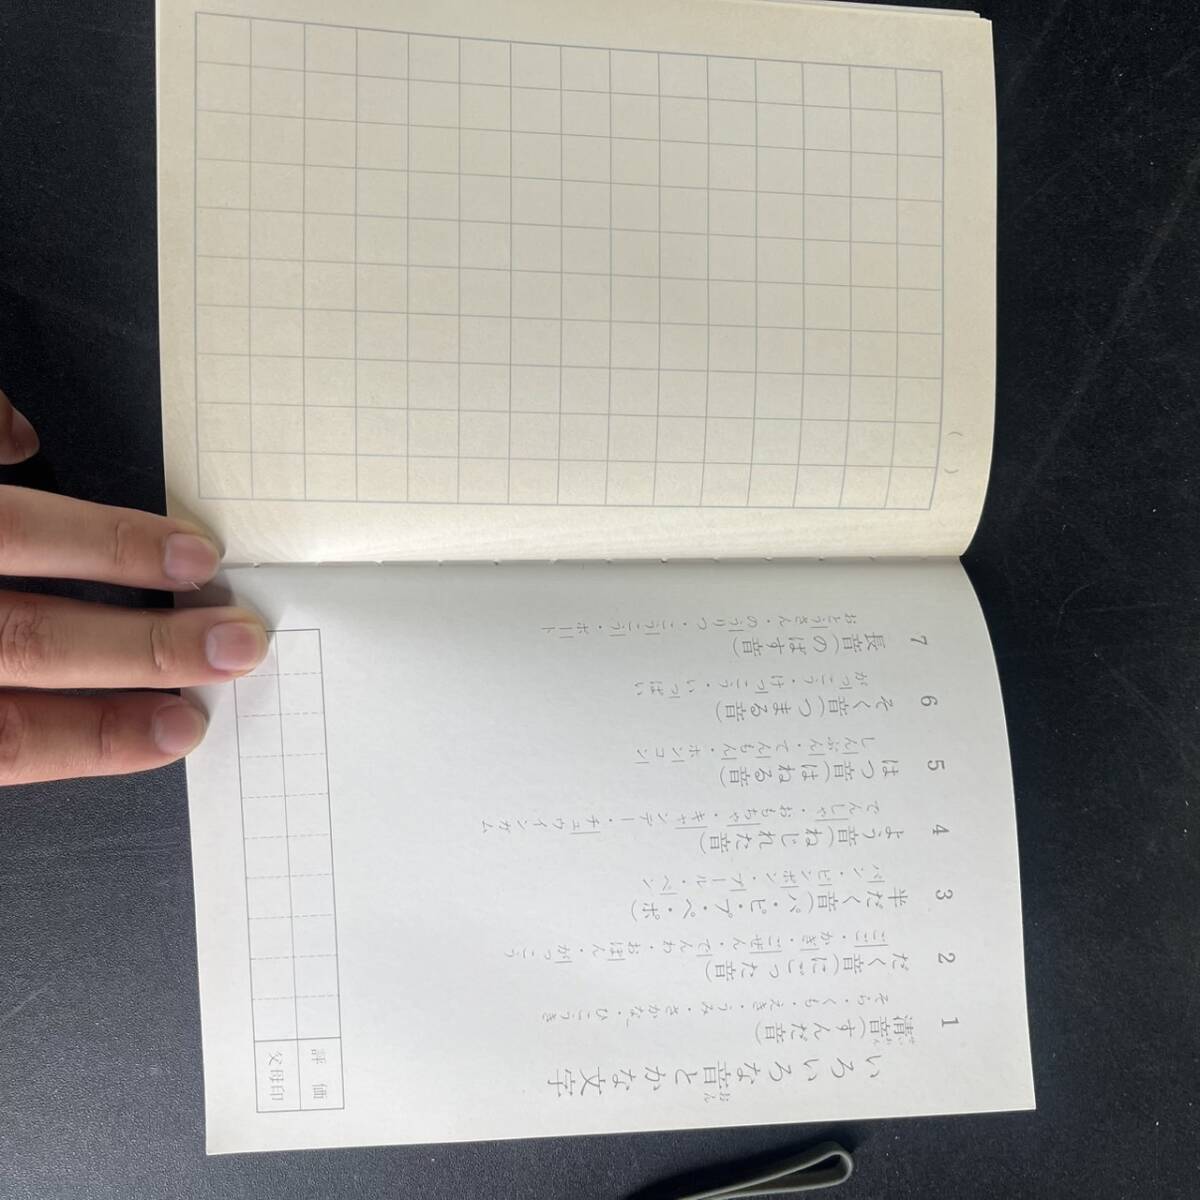 いろいろな音とかな文字
おん
1 清音(すんだ音)
せいおん
そら・くも・えき・うみ・さかな・ひこうき
2 だく音(にごった音)
ごご・かぎ・ごぜん・でんわ・おぼん・がっこう
3 半だく音(パ・ピ・プ・ペ・ポ)
パン・ピンポン・プール・ペン
4 よう音(ねじれた音)
でんしゃ・おもちゃ・キャンデー・チュウインガム
5 はつ音(はねる音)
しんぶん・てんもん・ホンコン
6 そく音(つまる音)
がっこう・けっこう・いっぱい
7 長音(のばす音)
おとうさん・のうりつ・こうこう・ボート
評価
父母印
( )